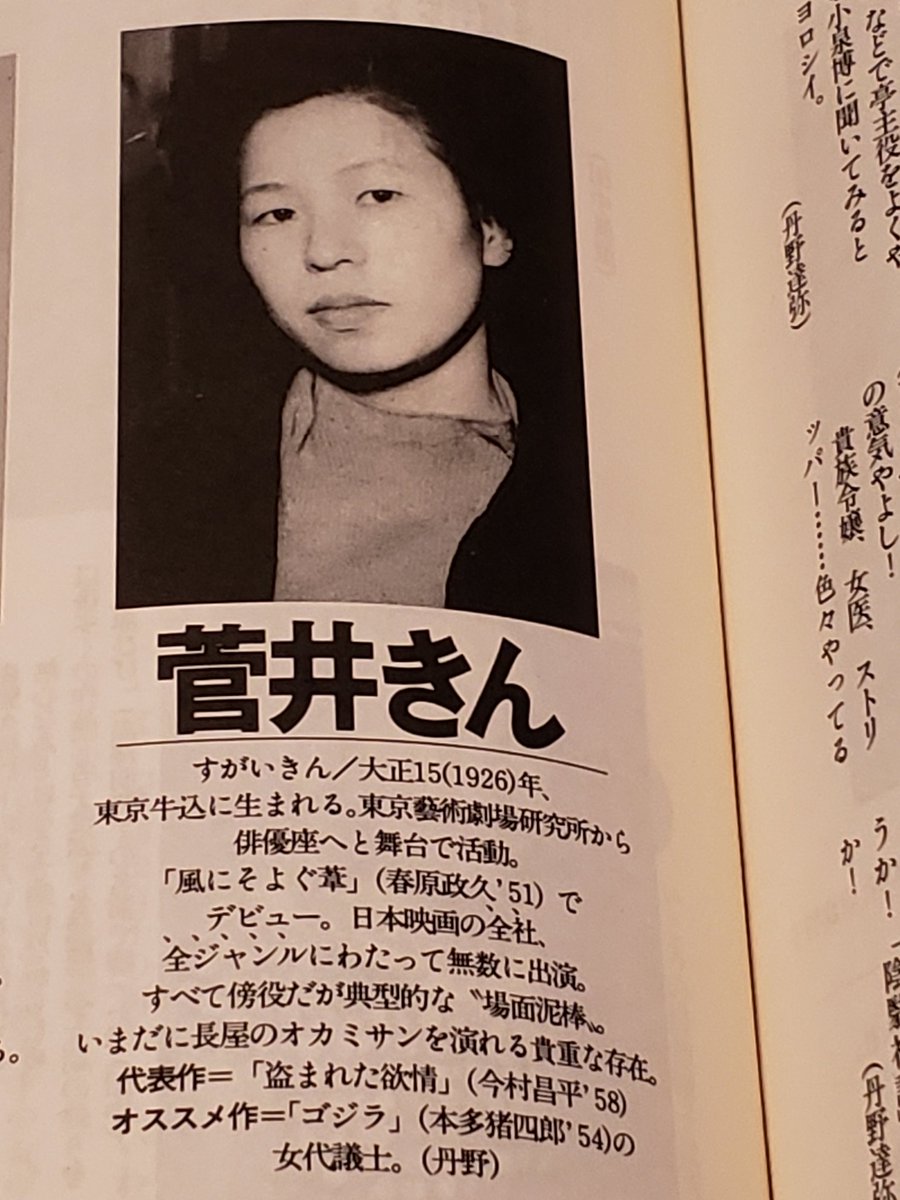 菅井きん
すがいきん／大正15(1926)年、
東京牛込に生まれる。東京藝術劇場研究所から
俳優座へと舞台で活動。
「風にそよぐ葦」(春原政久’51) で
デビュー。日本映画の全社、
全ジャンルにわたって無数に出演。
すべて傍役だが典型的な〝場面泥棒〟。
いまだに長屋のオカミサンを演れる貴重な存在。
代表作＝「盗まれた欲情」(今村昌平’58)
オススメ作＝「ゴジラ」(本多猪四郎’54)の
女代議士。(丹野)
などで亭主役をよくや
小泉博に聞いてみると
ヨロシイ。
(丹野達弥)
の意気やよし！
貴族令嬢、女医、ストリ
ッパー……色々やってる
うか！
か！
(丹野達弥
る。